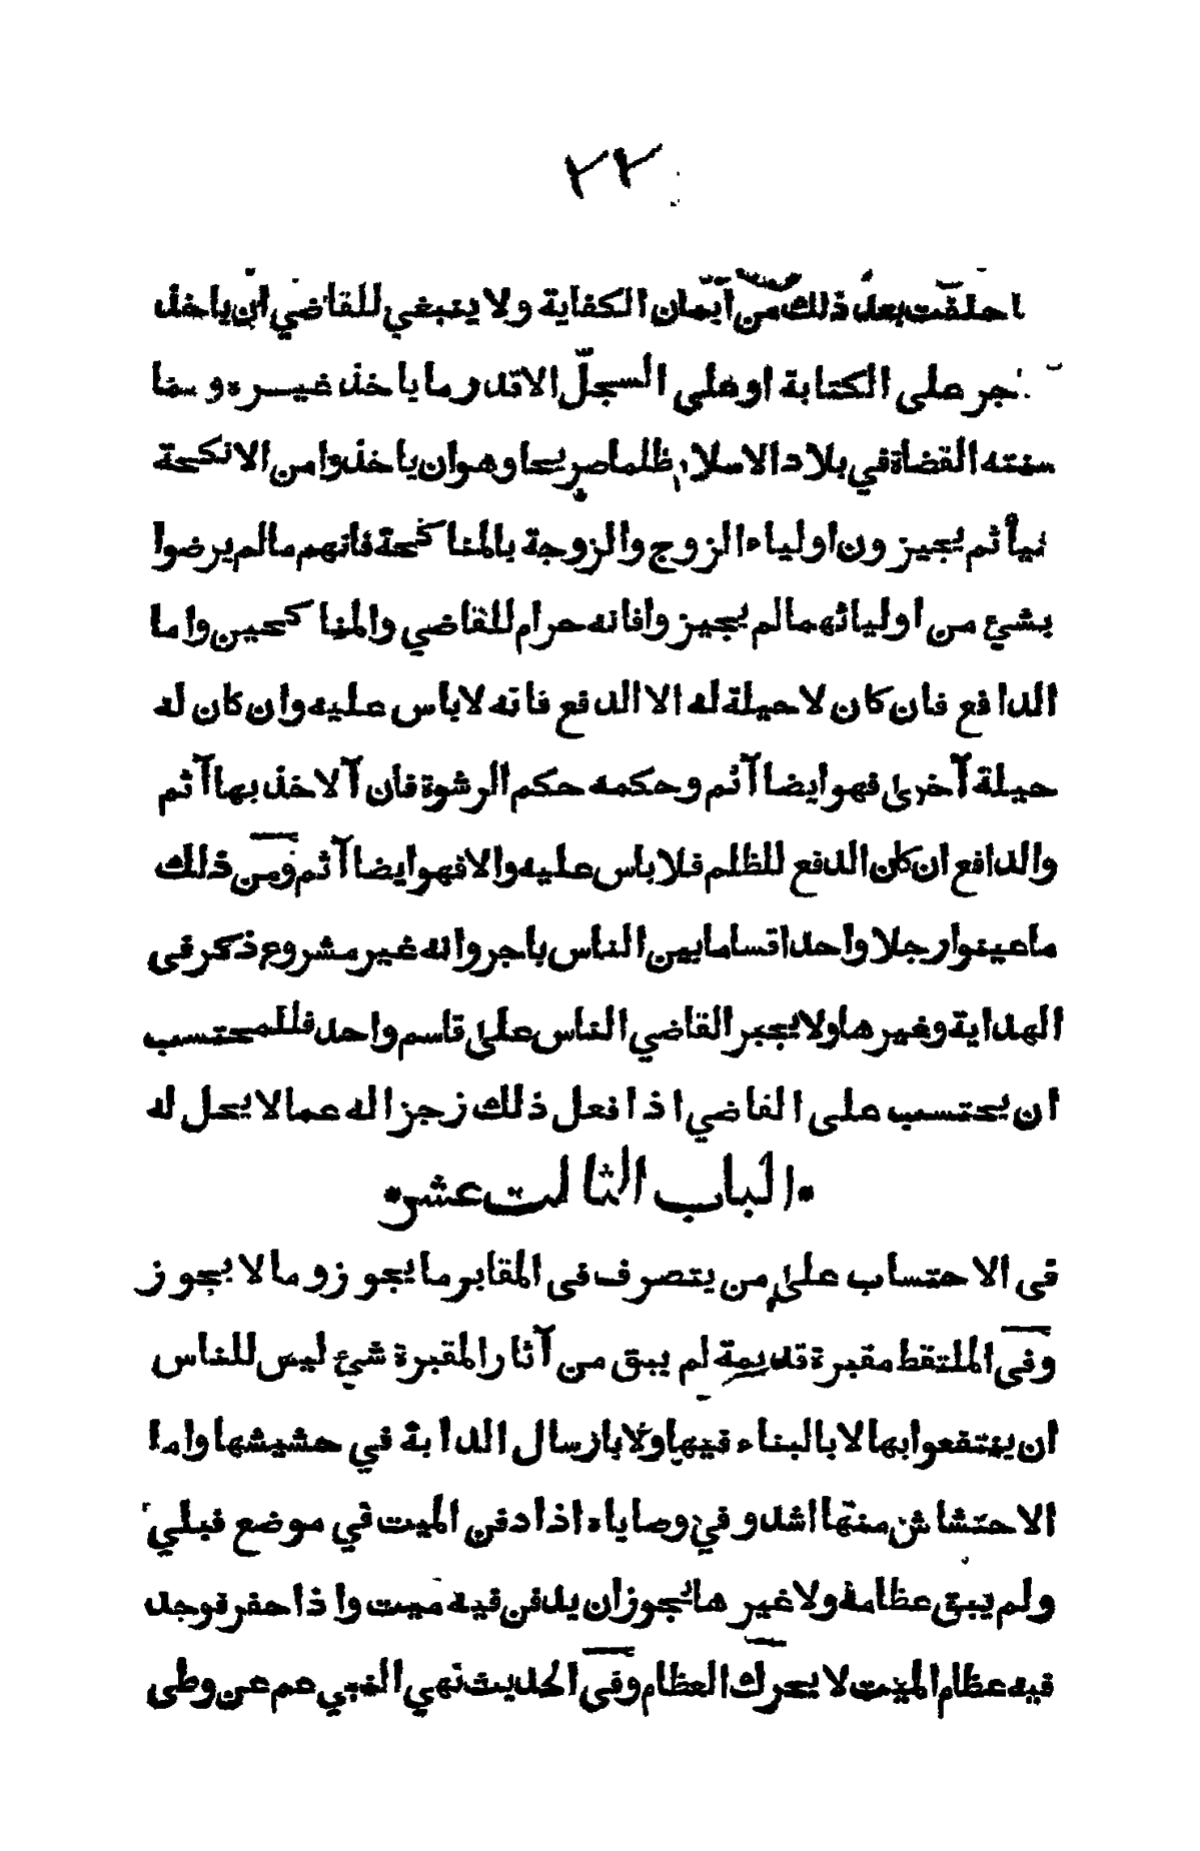 ٢٢
احلقت بعد ذلك من أيمان الكفاية ولا ينبغي للقاضي ان ياخذ
جر على الكتابة او على السجلّ الا قدر ما ياخذ غيره و مما
سنته القضاة في بلاد الاسلام ظلما صريحا وهو ان ياخذوا من الانكحة
ثم يجيزون اولياء الزوج والزوجة بالمناكحة فانهم ما لم يرضوا
بشيء من اوليائهما لم يجيزوا فانه حرام للقاضي والمناكحين واما
الدافع فان كان لا حيلة له الا الدفع فانه لا باس عليه وان كان له
حيلة آخرى فهو ايضا آثم وحكمه حكم الرشوة فان آلاخذ بها آثم
والدافع ان كان الدفع للظلم فلا باس عليه والا فهو ايضا آثم ومن ذلك
ما عينوا رجلا واحدا قساما بين الناس باجر وانه غير مشروع ذكر فى
الهداية وغيرها ولا يجبر القاضي الناس على قاسم واحد فللمحتسب
ان يحتسب على القاضي اذا فعل ذلك زجرا له عما لا يحل له
* الباب الثالث عشر *
فى الاحتساب على من يتصرف فى المقابر ما يجوز وما لا يجوز
وفى الملتقط مقبرة قديمة لم يبق من آثار المقبرة شئ ليس للناس
ان ينتفعوا بها لا بالبناء فيها ولا بارسال الدابة في حشيشها واما
الاحتشاش منها اشد وفي وصاياه اذا دفن الميت في موضع فبلي
ولم يبق عظامه ولا غيرها يجوز ان يدفن فيه ميت واذا حفر فوجد
فيه عظام الميت لا يحرك العظام وفى الحديث نهي النبي عم عن وطى